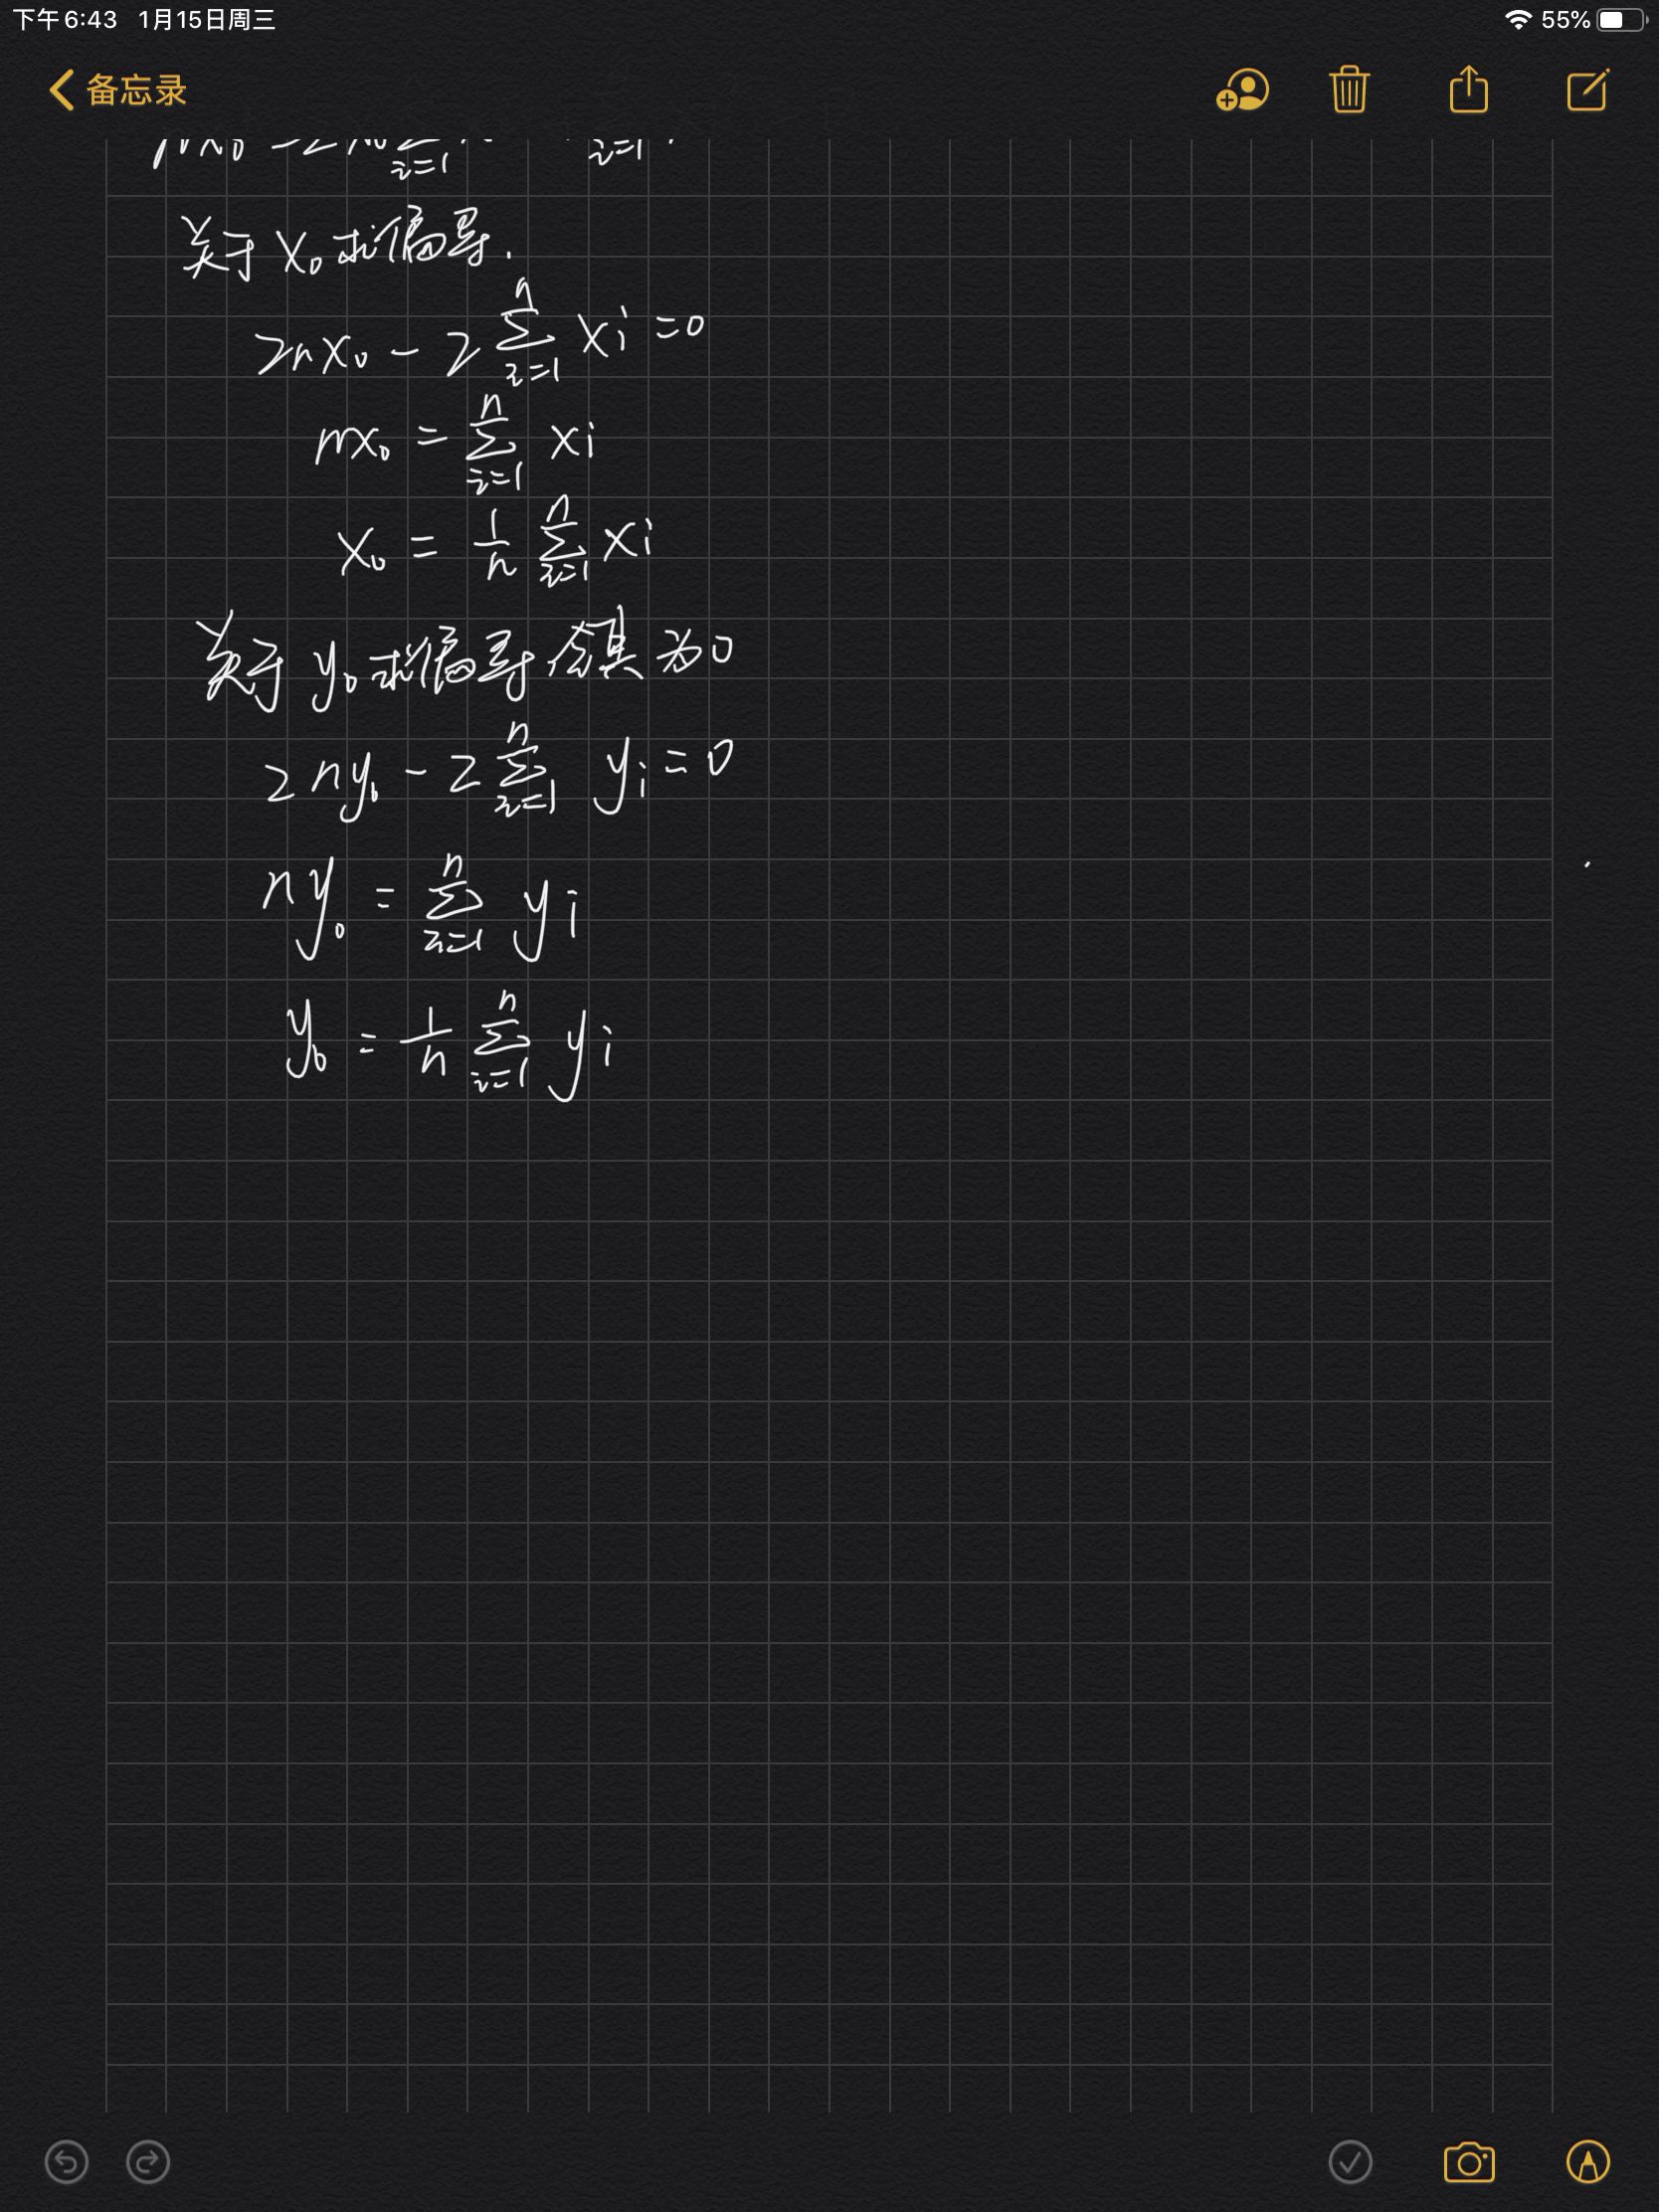 下午6:43 1月15日周三 55%
备忘录
关于 x₀ 求偏导.
2nx₀ - 2 ∑ⁿᵢ₌₁ xi = 0
nx₀ = ∑ⁿᵢ₌₁ xi
x₀ = 1/n ∑ⁿᵢ₌₁ xi
关于 y₀ 求偏导 令其为0
2ny₀ - 2 ∑ⁿᵢ₌₁ yi = 0
ny₀ = ∑ⁿᵢ₌₁ yi
y₀ = 1/n ∑ⁿᵢ₌₁ yi